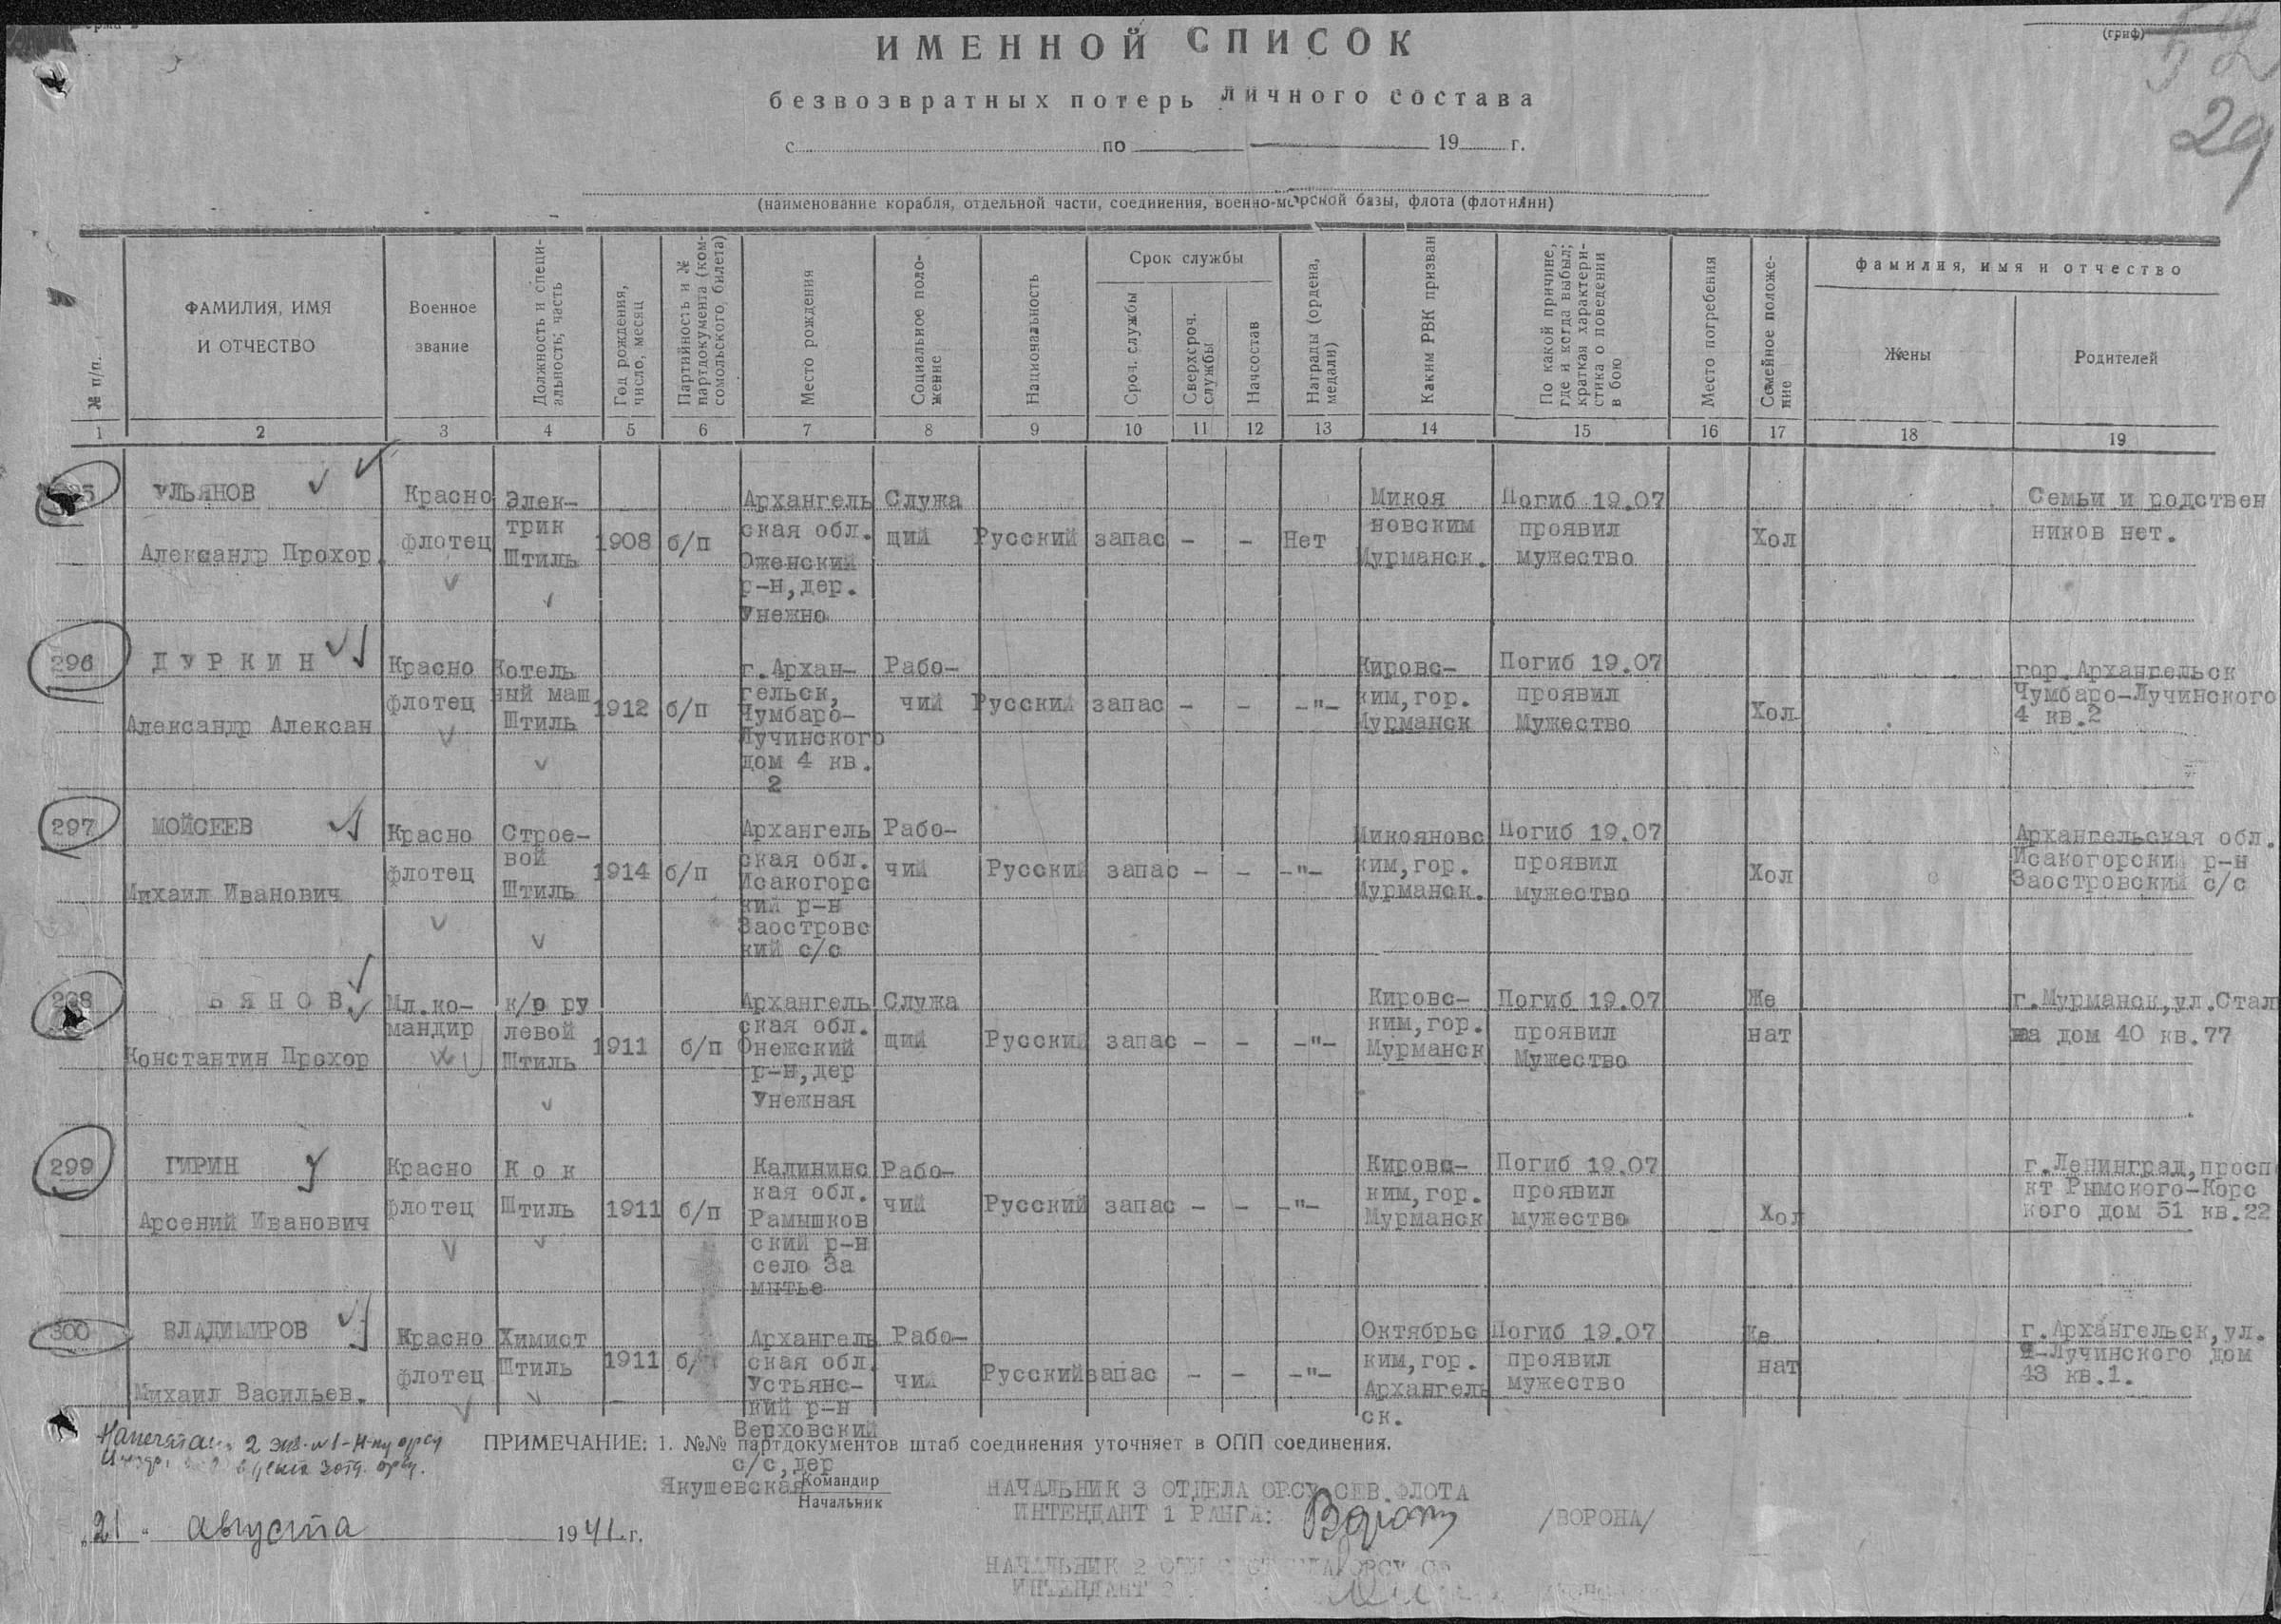 ИМЕННОЙ СПИСОК
(гриф)
безвозвратных потерь личного состава
29
с по 19 г.
(наименование корабля, отдельной части, соединения, военно-морской базы, флота (флотилии)
№ п/п.
ФАМИЛИЯ, ИМЯ
И ОТЧЕСТВО
Военное
звание
Должность и специ-
альность; часть
Год рождения,
число, месяц
Партийность и №
партдокумента (ком-
сомольского билета)
Место рождения
Социальное поло-
жение
Национальность
Срок службы
Сроч. службы
Сверхсроч.
службы
Начсостав
Награды (ордена,
медали)
Каким РВК призван
По какой причине,
где и когда выбыл;
краткая характери-
стика о поведении
в бою
Место погребения
Семейное положе-
ние
фамилия, имя и отчество
Жены
Родителей
1 2 3 4 5 6 7 8 9 10 11 12 13 14 15 16 17 18 19
УЛЬЯНОВ
Александр Прохор.
Красно
флотец
Элек-
трик
Штиль
1908
б/п
Архангель
ская обл.
Оженский
р-н,дер.
Унежно
Служа
щий
Русский
запас
-
-
Нет
Микоя
новским
Мурманск.
Погиб 19.07
проявил
мужество
Хол
Семьи и родствен
ников нет.
296
ДУРКИН
Александр Алексан
Красно
флотец
Котель
ный маш
Штиль
1912
б/п
г.Архан-
гельск,
Чумбаро-
Лучинского
дом 4 кв.
2
Рабо-
чий
Русский
запас
-
-
-"-
Кировс-
ким,гор.
Мурманск
Погиб 19.07
проявил
Мужество
Хол
гор.Архангельск
Чумбаро-Лучинского
4 кв.2
297
МОЙСЕЕВ
Михаил Иванович
Красно
флотец
Строе-
вой
Штиль
1914
б/п
Архангель
ская обл.
Исакогорс
кий р-н
Заостровс
кий с/с
Рабо-
чий
Русский
запас
-
-
-"-
Микояновс
ким,гор.
Мурманск.
Погиб 19.07
проявил
мужество
Хол
Архангельская обл.
Исакогорский р-н
Заостровский с/с
298
ЬЯНОВ
Константин Прохор
Мл.ко-
мандир
к/р ру
левой
Штиль
1911
б/п
Архангель
ская обл.
Онежский
р-н,дер
Унежная
Служа
щий
Русский
запас
-
-
-"-
Кировс-
ким,гор.
Мурманск
Погиб 19.07
проявил
Мужество
Же
нат
г.Мурманск,ул.Стал
на дом 40 кв.77
299
ГИРИН
Арсений Иванович
Красно
флотец
Кок
Штиль
1911
б/п
Калининс
кая обл.
Рамышков
ский р-н
село За
мытье
Рабо-
чий
Русский
запас
-
-
-"-
Кировс-
ким,гор.
Мурманск
Погиб 19.07
проявил
мужество
Хол
г.Ленинград,просп
кт Рымского-Корс
кого дом 51 кв.22
300
ВЛАДИМИРОВ
Михаил Васильев.
Красно
флотец
Химист
Штиль
1911
б/
Архангель
ская обл.
Устьянс-
кий р-н
Верховский
с/с,дер
Якушевская
Рабо-
чий
Русский
запас
-
-
-"-
Октябрьс
ким,гор.
Архангель
ск.
Погиб 19.07
проявил
мужество
Же
нат
г.Архангельск,ул.
Ч-Лучинского дом
43 кв.1.
ПРИМЕЧАНИЕ: 1. №№ партдокументов штаб соединения уточняет в ОПП соединения.
Командир
Начальник
НАЧАЛЬНИК 3 ОТДЕЛА ОРСУ СЕВ.ФЛОТА
ИНТЕНДАНТ 1 РАНГА:
/ВОРОНА/
„21" августа 1941 г.
НАЧАЛЬНИК 2
ИНТЕНДАНТ